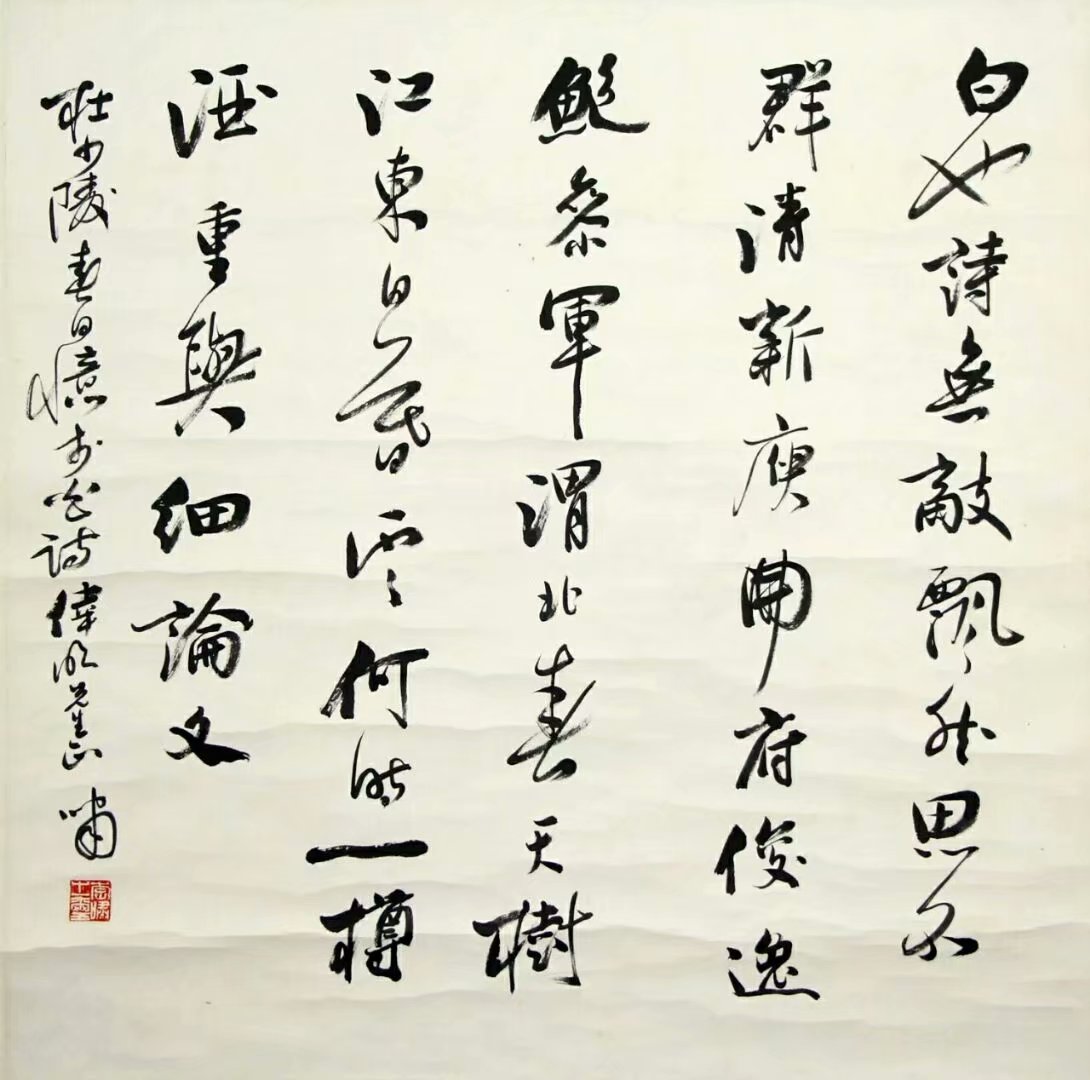 白也詩無敵飄然思不
群清新庾開府俊逸
鮑參軍渭北春天樹
江東日暮雲何時一樽
酒重與細論文
杜少陵春日憶李白诗偉先生正 嘯